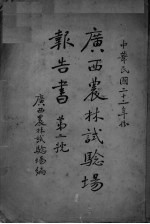 中華民國二十一年份
廣西農林試驗場
報告書 第二號
廣西農林試驗場編